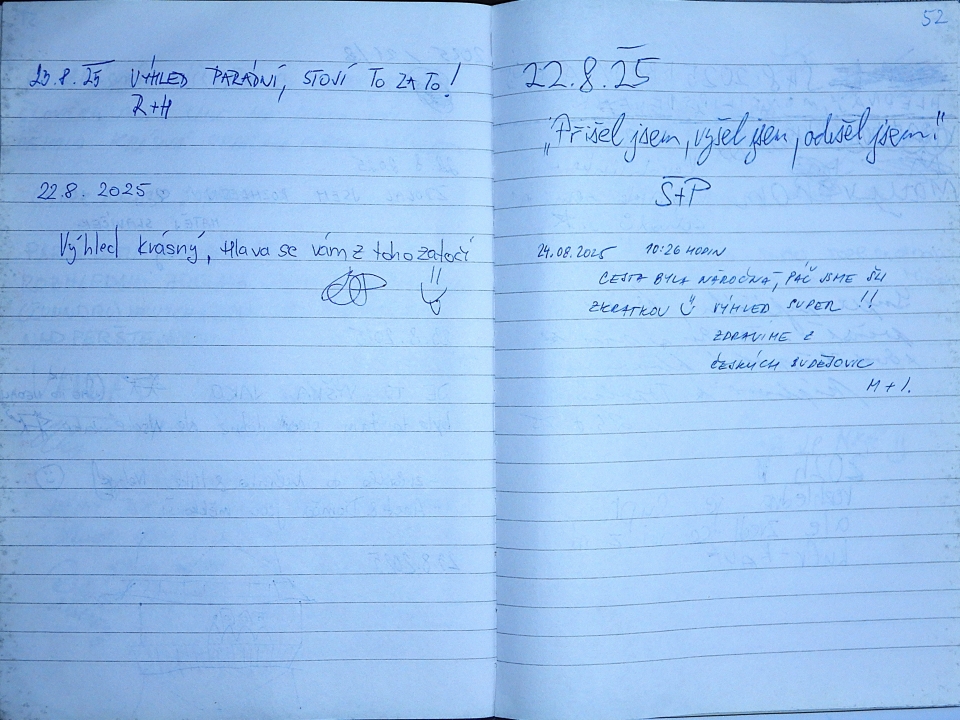 23.8.25 VÝHLED PARÁDNÍ, STOJÍ TO ZA TO!
R+H
22.8. 2025
Výhled krásný, Hlava se vám z toho zatočí
!!
52
22.8.25
„Přišel jsem, vyšel jsem, odešel jsem.“
Š+P
24.08.2025 10:26 HODIN
CESTA BYLA NÁROČNÁ, PÁČ JSME ŠLI
ZKRATKOU VÝHLED SUPER !!
ZDRAVÍME Z
ČESKÝCH BUDĚJOVIC
M + I.